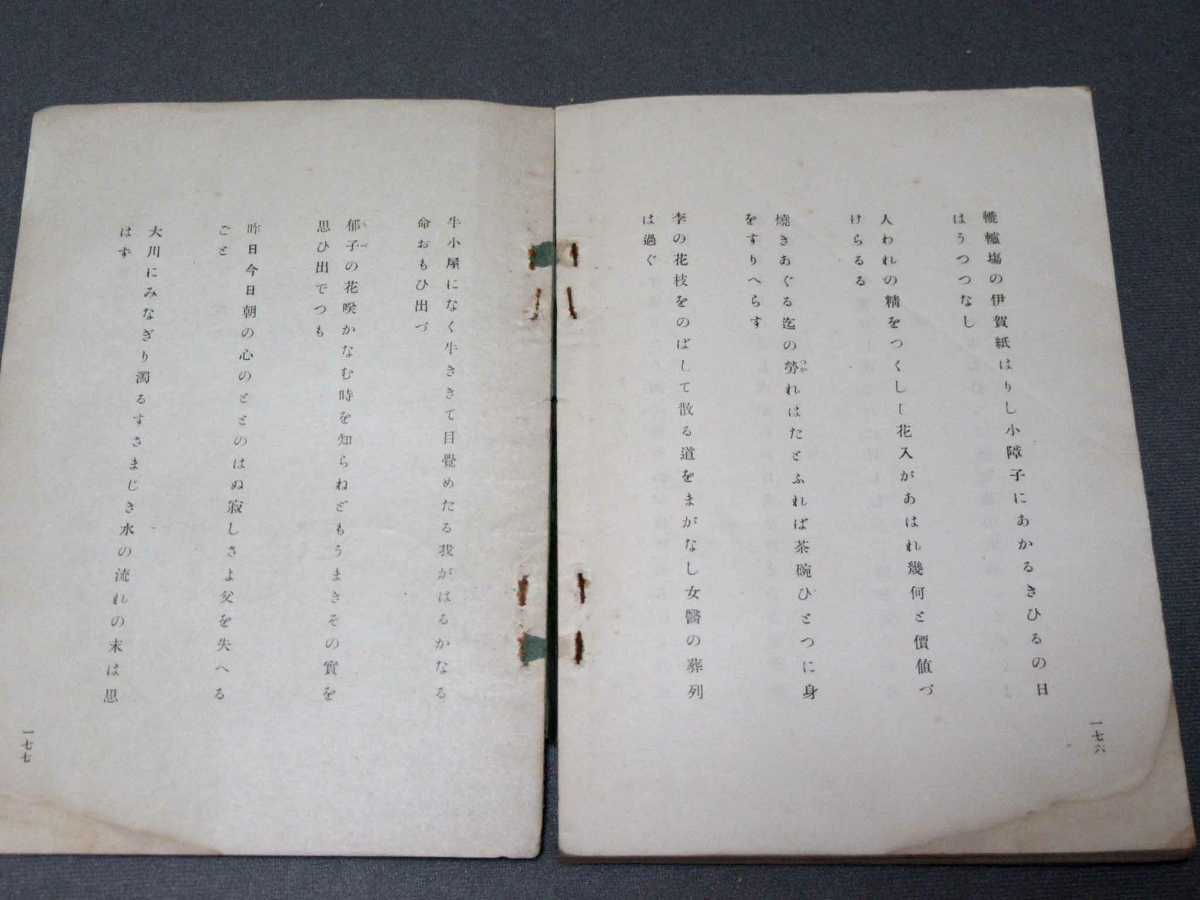 轆轤塲の伊賀紙はりし小障子にあかるきひるの日
はうつつなし
人われの精をつくしし花入があはれ幾何と價値づ
けらるる
燒きあぐる迄の勞れはたとふれば茶碗ひとつに身
をすりへらす
李の花枝をのばして散る道をまがなし女醫の葬列
は過ぐ
一七六
牛小屋になく牛ききて目覺めたる我がはるかなる
命おもひ出づ
郁子の花咲かなむ時を知らねどもうまきその實を
思ひ出でつも
昨日今日朝の心のととのはぬ寂しさよ父を失へる
ごと
大川にみなぎり濁るすさまじき水の流れの末は思
はず
一七七